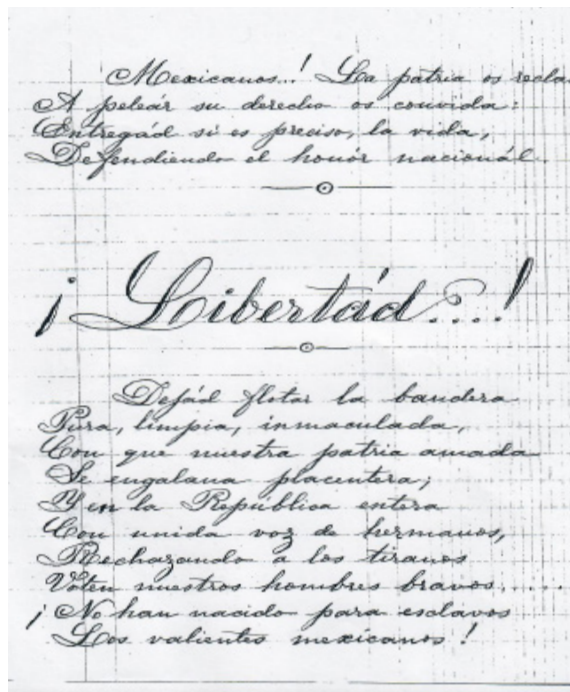 Mexicanos..! La patria os recla
A peleár su derecho os convida:
Entregád si es preciso, la vida,
Defendiendo el honór nacionál.
¡Libertád...!
Dejád flotar la bandera
Pura, limpia, inmaculada,
Con que nuestra patria amada
Se engalana placentera;
Y en la República entera
Con unida voz de hermanos,
Rechazando a los tiranos
Voten nuestros hombres bravos....
¡No han nacido para esclavos
Los valientes mexicanos!